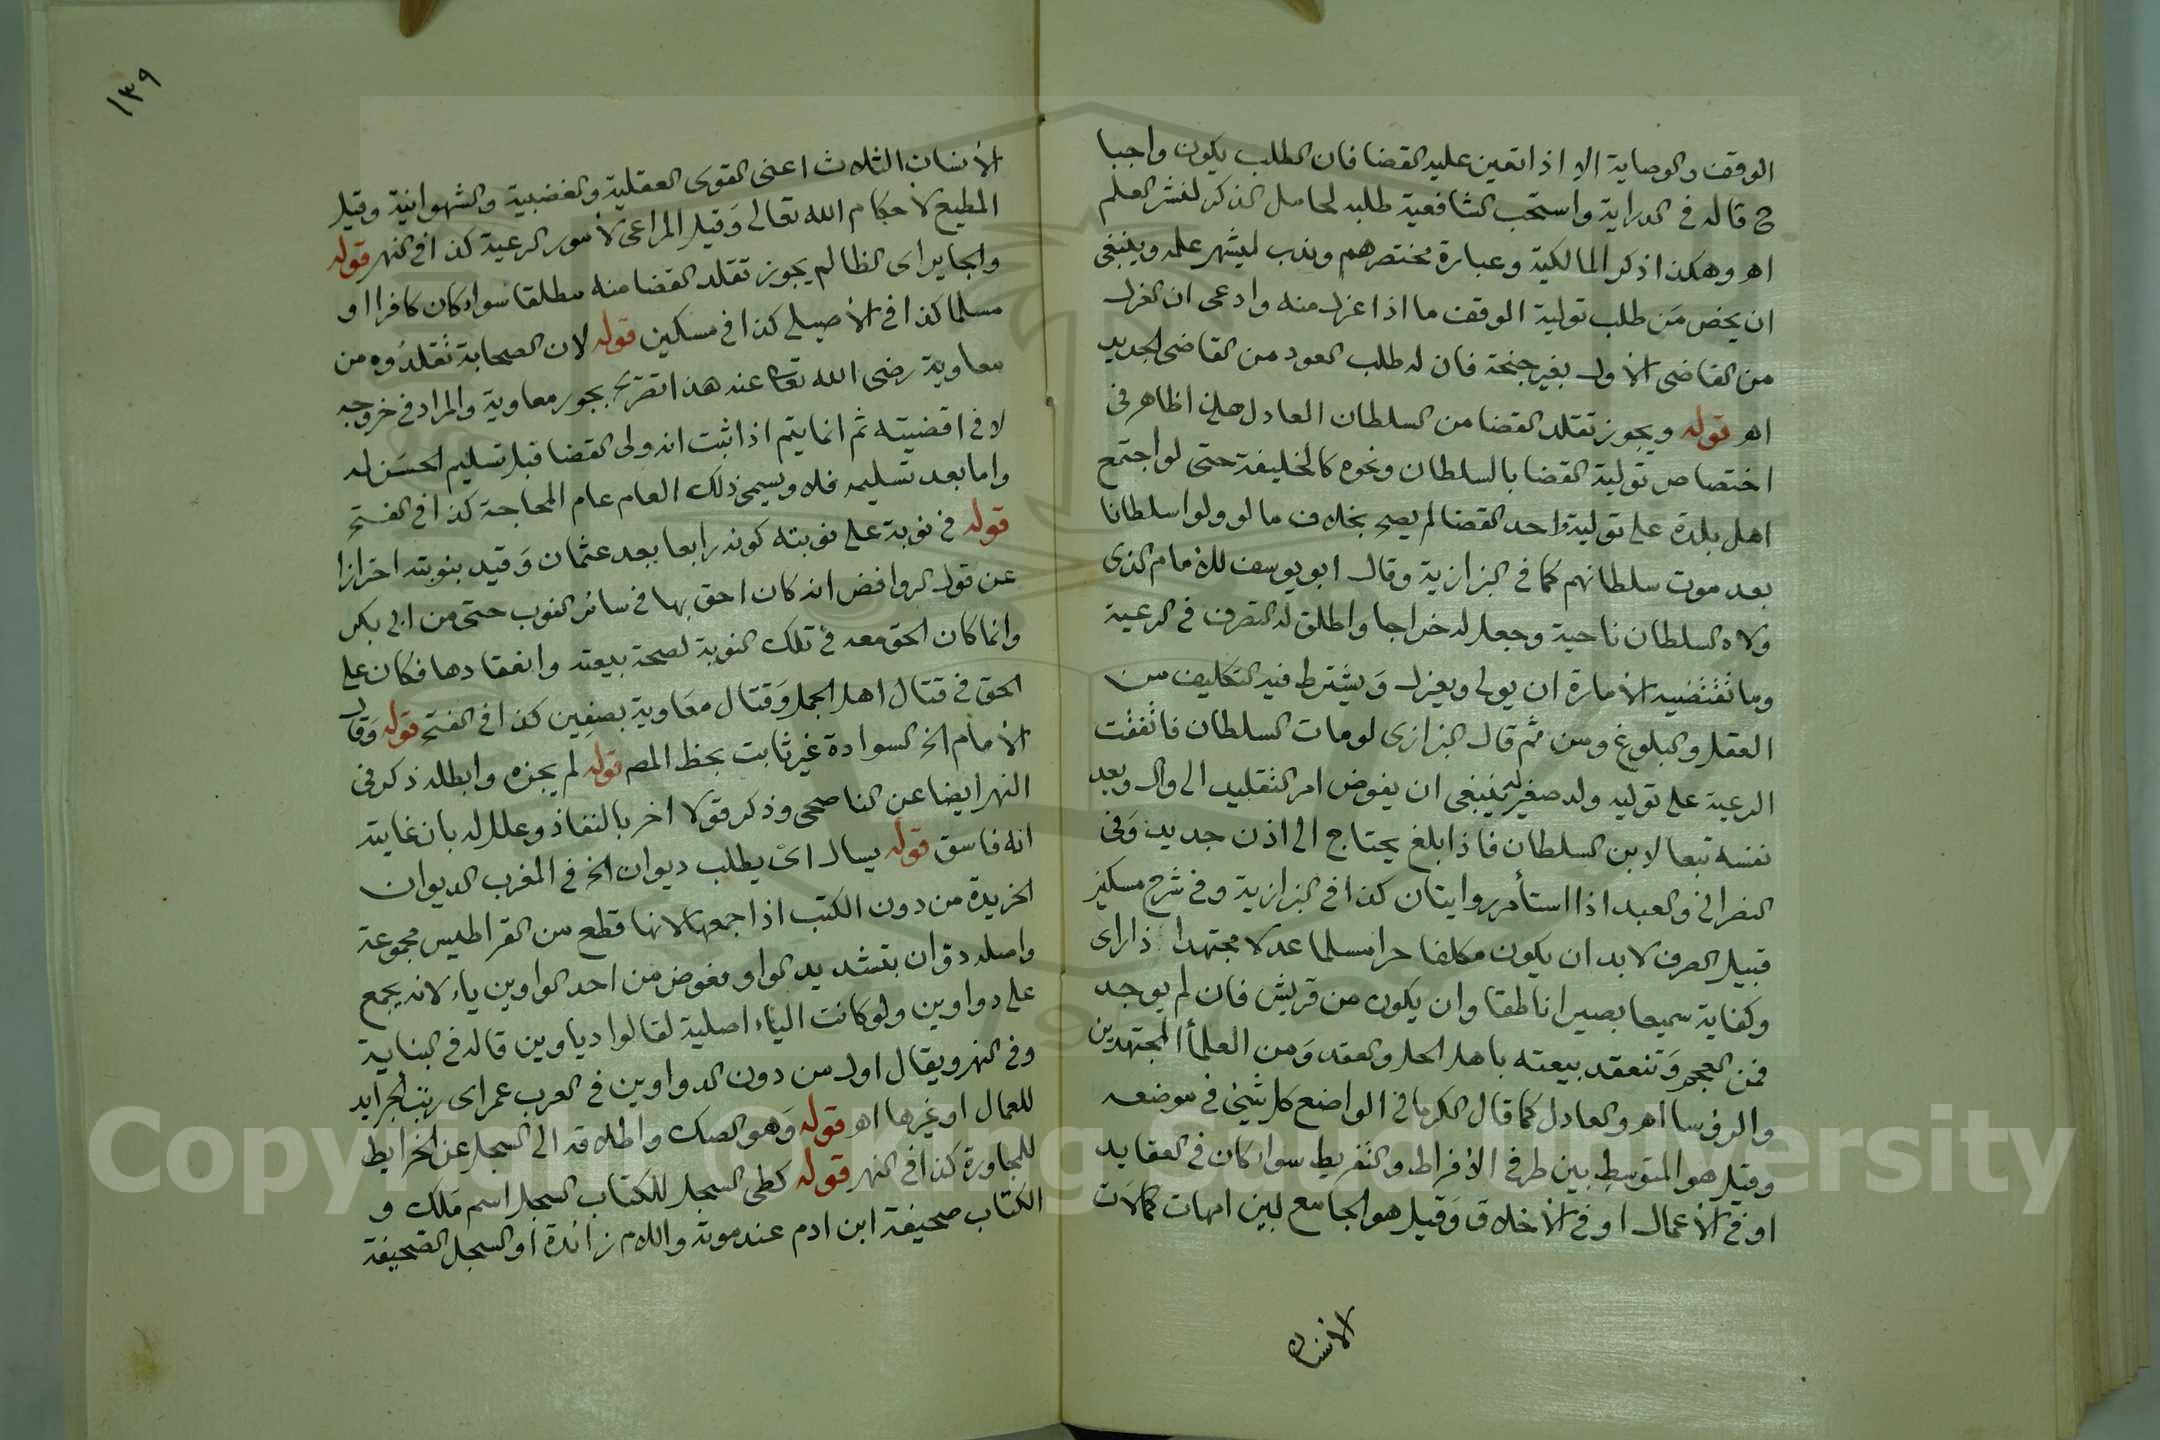 الوقف والوصاية الا اذا تعين عليه القضا فان الطلب يكون واجبا
ح قاله فى الدراية واستحب الشافعية طلبه لخامل الذكر لنشر العلم
اهـ وهكذا ذكر المالكية وعبارة مختصرهم وندب ليشهر علمه وينبغى
ان يخص من طلب تولية الوقف ما اذا عزل منه وادعى ان العزل
من القاضى الاول بغير جنحة فان له طلب العود من القاضى الجديد
اهـ قوله ويجوز تقلد القضا من السلطان العادل هذا ظاهر فى
اختصاص تولية القضا بالسلطان ونحوه كالخليفة حتى لو اجتمع
اهل بلدة على تولية واحد القضا لم يصح بخلاف ما لو ولوا سلطانا
بعد موت سلطانهم كما فى البزازية وقال ابو يوسف للامام الذى
ولاه السلطان ناحية وجعل له خراجا واطلق له التصرف فى الرعية
وما تقتضيه الامارة ان يولى ويعزل ويشترط فيه التكليف من
العقل والبلوغ ومن ثم قال البزازى لو مات السلطان فاتفقت
الرعية على توليه ولد صغير له ينبغى ان يفوض امر التقليد الى وال ويعد
نفسه تبعا لابن السلطان فاذا بلغ يحتاج الى اذن جديد وفى
النصرانى والعبد اذا استأمر روايتان كذا فى البزازية وفى شرح مسكين
قبيل الصرف لابد ان يكون مكلفا حرا مسلما عدلا مجتهدا ذا راى
وكفاية سميعا بصيرا ناطقا وان يكون من قريش فان لم يوجد
فمن العجم وتنعقد بيعته باهل الحل والعقد ومن العلمأ المجتهدين
والروسا اهـ والعادل كما قال الكرمانى الواضع كل شئ فى موضعه
وقيل هو المتوسط بين طرفى الافراط والتفريط سواء كان فى العقايد
او فى الاعمال او فى الاخلاق وقيل هو الجامع لبين امهات كمالات
الانسان
١٣٩
الأنسان الثلاث اعنى القوى العقلية والغضبية والشهوانية وقيل
المطيع لاحكام الله تعالى وقيل المراعى لأمور الرعية كذا فى النهر قوله
والجاير اى الظالم يجوز تقلد القضا منه مطلقا سواء كان كافرا او
مسلما كذا فى الاصيلى كذا فى مسكين قوله لان الصحابة تقلدوه من
معاوية رضى الله تعا عنه هذا تصريح بجور معاوية والمراد فى خروجه
لا فى اقضيته ثم انما يتم اذا ثبت انه ولى القضا قبل تسليم الحسن له
واما بعد تسليمه فلا ويسمى ذلك العام عام المحاجة كذا فى الفتح
قوله فى نوبة على نوبته كونه رابعا بعد عثمان وقيد بنوبته احترازا
عن قول الروافض انه كان احق بها فى سائر النوب حتى من ابى بكر
وانما كان الحق معه فى تلك النوبة لصحة بيعته وانعقادها فكان على
الحق فى قتال اهل الجمل وقتال معاوية بصفين كذا فى الفتح قوله وقال
الامام الخ السوادة غير ثابت بخط المص قوله لم يجزه وابطله ذكر فى
النهر ايضا عن الناصحى وذكر قولا اخر بالنفاذ وعلل له بان غايته
انه فاسق قوله يسال اى يطلب ديوان الخ فى المغرب الديوان
الخريدة من دون الكتب اذا جمعها لانها قطع من القراطيس مجموعة
واصله دوان بتشديد الواو فعوض من احد الواوين ياء لانه يجمع
على دواوين ولو كانت الياء اصلية لقالوا دياوين قاله فى البناية
وفى النهر ويقال اول من دون الدواوين فى العرب عمر اى رتب الجرايد
للعمال او غيرها اهـ قوله وهو الصك واطلاقه الى السجل عن الخرايط
للمجاورة كذا فى النهر قوله كطى السجل للكتاب السجل اسم ملك و
الكتاب صحيفة ابن ادم عند موته واللام زائدة او السجل الصحيفة
Copyright © King Saud University